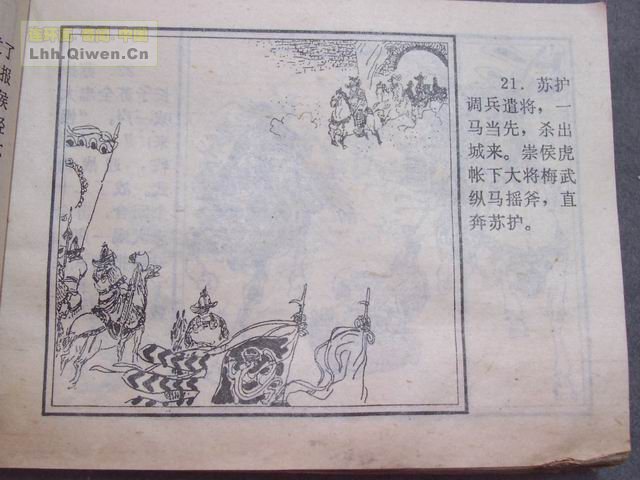 连环画·奇闻·中国
Lhh.Qiwen.Cn
21．苏护
调兵遣将，一
马当先，杀出
城来。崇侯虎
帐下大将梅武
纵马摇斧，直
奔苏护。
了
报
侯
经